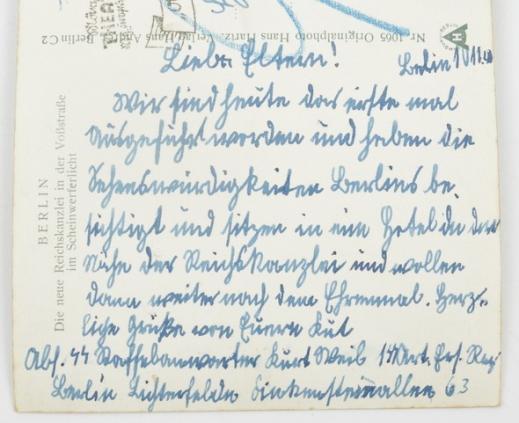 Nr. 1065 Originalphoto Hans Hartz. Verlag Hans Berlin C2
Liebe Eltern!
Berlin 10.11.40
Wir sind heute das erste mal
ausgeführt worden und haben die
Sehenswürdigkeiten Berlins be-
sichtigt und sitzen in ein Hotel in der
Nähe der Reichskanzlei und wollen
dann weiter nach dem Ehrenmal. Herz-
liche Grüße von Euern Kurt
Abs. SS Staffelanwarter Kurt Weib Art. Ers. Reg.
Berlin Lichterfelde Finkensteinallee 63
BERLIN
Die neue Reichskanzlei in der Voßstraße
im Scheinwerferlicht